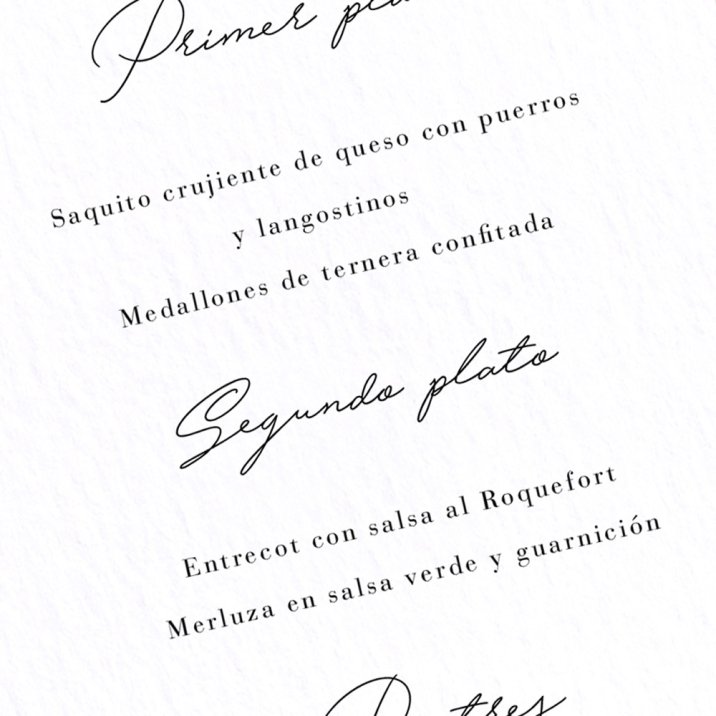 Primer
Saquito crujiente de queso con puerros
y langostinos
Medallones de ternera confitada
Segundo plato
Entrecot con salsa al Roquefort
Merluza en salsa verde y guarnición